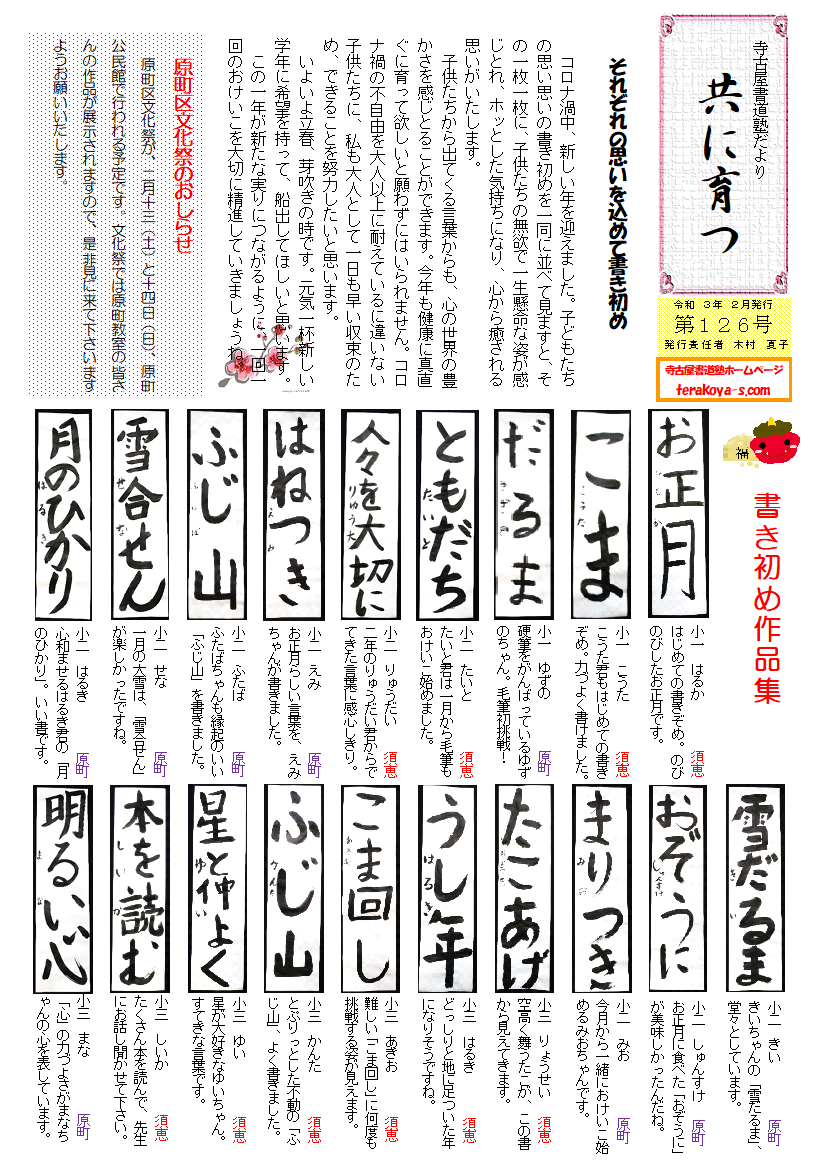 寺古屋書道塾だより
共に育つ
令和 3年 2月発行
第126号
発行責任者 木村 真子
寺古屋書道塾ホームページ
terakoya-s.com
それぞれの思いを込めて書き初め
コロナ渦中、新しい年を迎えました。子どもたち
の思い思いの書き初めを一同に並べて見ますと、そ
の一枚一枚に、子供たちの無欲で一生懸命な姿が感
じとれ、ホッとした気持ちになり、心から癒される
思いがいたします。
子供たちから出てくる言葉からも、心の世界の豊
かさを感じとることができます。今年も健康に真直
ぐに育って欲しいと願わずにはいられません。コロ
ナ禍の不自由を大人以上に耐えているに違いない
子供たちに、私も大人として一日も早い収束のた
め、できることを努力したいと思います。
いよいよ立春、芽吹きの時です。元気一杯新しい
学年に希望を持って、船出してほしいと思います。
この一年が新たな実りにつながるように、一回一
回のおけいこを大切に精進していきましょうね。
原町区文化祭のおしらせ
原町区文化祭が、二月十三(土)と十四日(日)、原町
公民館で行われる予定です。文化祭では原町教室の皆さ
んの作品が展示されますので、是非見に来て下さいます
ようお願いいたします。
福
書き初め作品集
お正月
小一 はるか 須恵
はじめての書きぞめ。のび
のびしたお正月です。
こま
こうた
小一 こうた 須恵
こうた君もはじめての書き
ぞめ。力づよく書けました。
だるま
小一 ゆずの 原町
硬筆をがんばっているゆず
のちゃん。毛筆初挑戦!
ともだち
たいと
小二 たいと 須恵
たいと君は一月から毛筆も
おけいこ始めました。
人々を大切に
りゅう大
小二 りゅうだい 須恵
二年のりゅうだい君からで
てきた言葉に感心しきり。
はねつき
えみ
小二 えみ 原町
お正月らしい言葉を、えみ
ちゃんが書きました。
ふじ山
ふたば
小二 ふたば 原町
ふたばちゃんも縁起のいい
「ふじ山」を書きました。
雪合せん
せな
小二 せな 原町
一月の大雪は、「雪合せん」
が楽しかったですね。
月のひかり
はるき
小二 はるぎ 原町
心和ませるはるき君の「月
のひかり」。いい書です。
雪だるま
きい
小二 きい 原町
きいちゃんの「雪だるま」、
堂々としています。
おぞうに
しゅんすけ
小二 しゅんすけ 原町
お正月に食べた「おぞうに」
が美味しかったんだね。
まりつき
みお
小二 みお 原町
今月から一緒におけいこ始
めるみおちゃんです。
たこあげ
小三 りょうせい 須恵
空高く舞う「たこ」が、この書
から見えてきます。
うし年
はるき
小三 はるぎ 須恵
どっしりと地に足ついた年
になりそうですね。
こま回し
小三 あきお 須恵
難しい「こま回し」に何度も
挑戦する姿が見えます。
ふじ山
けんた
小三 かんた 須恵
とぷりっとした不動の「ふ
じ山」、よく書きました。
星と仲よく
ゆい
小三 ゆい 須恵
星が大好きなゆいちゃん。
すてきな言葉です。
本を読む
しいか
小三 しいか 須恵
たくさん本を読んで、先生
にお話し聞かせて下さい。
明るい心
まな
小三 まな 原町
「心」の力づよさがまなち
ゃんの心を表しています。